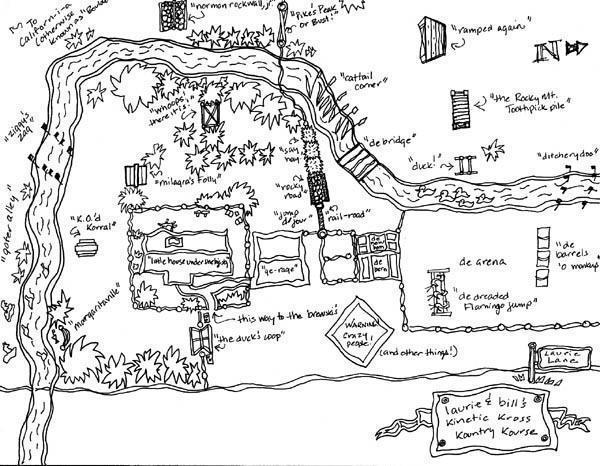 → To
California
(otherwise
known as "Boulder
"norman rockwall, jr."
"Pikes Peak
or Bust!"
"ramped again"
IN
"cattail
corner"
"whoops!
there it is!"
"the Rocky Mt.
Toothpick pile"
"ziggy's
zag"
"de bridge"
"duck!"
"ditcherydoo"
"milagra's Folly"
"rocky
road"
"gater alley"
"K.O.'d
Korral"
"jump
de jour"
"rail-road"
"little house under the big sky"
"ge-rage"
de
barn
de arena
"de
barrels
'o monkeys"
"de dreaded
Flamingo Jump"
"Margaritaville"
this way to the brewski!
"the duck's coop"
WARNING
crazy
people!
(and other things!)
Laurie
Lane
laurie & bill's
Kinetic Kross
Kountry Kourse